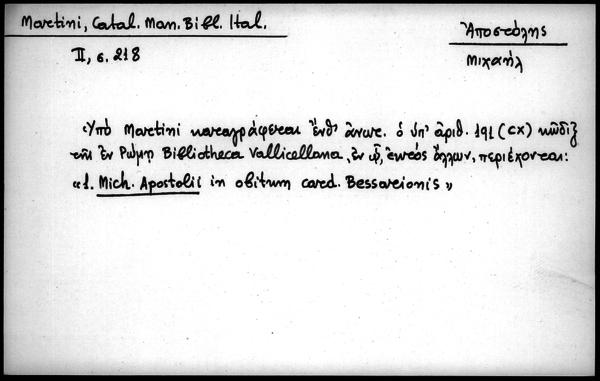 Martini, Catal. Man. Bibl. Ital.
II, σ. 218
Ἀποστόλης
Μιχαήλ
Ὑπὸ Martini καταγράφεται ἔνθ' ἄνωτ. ὁ ὑπ' ἀριθ. 191 (CX) κῶδιξ
τῆς ἐν Ρώμῃ Bibliotheca Vallicellana, ἐν ᾧ, ἐκτὸς ἄλλων, περιέχονται:
«1. Mich. Apostolii in obitum card. Bessarionis»